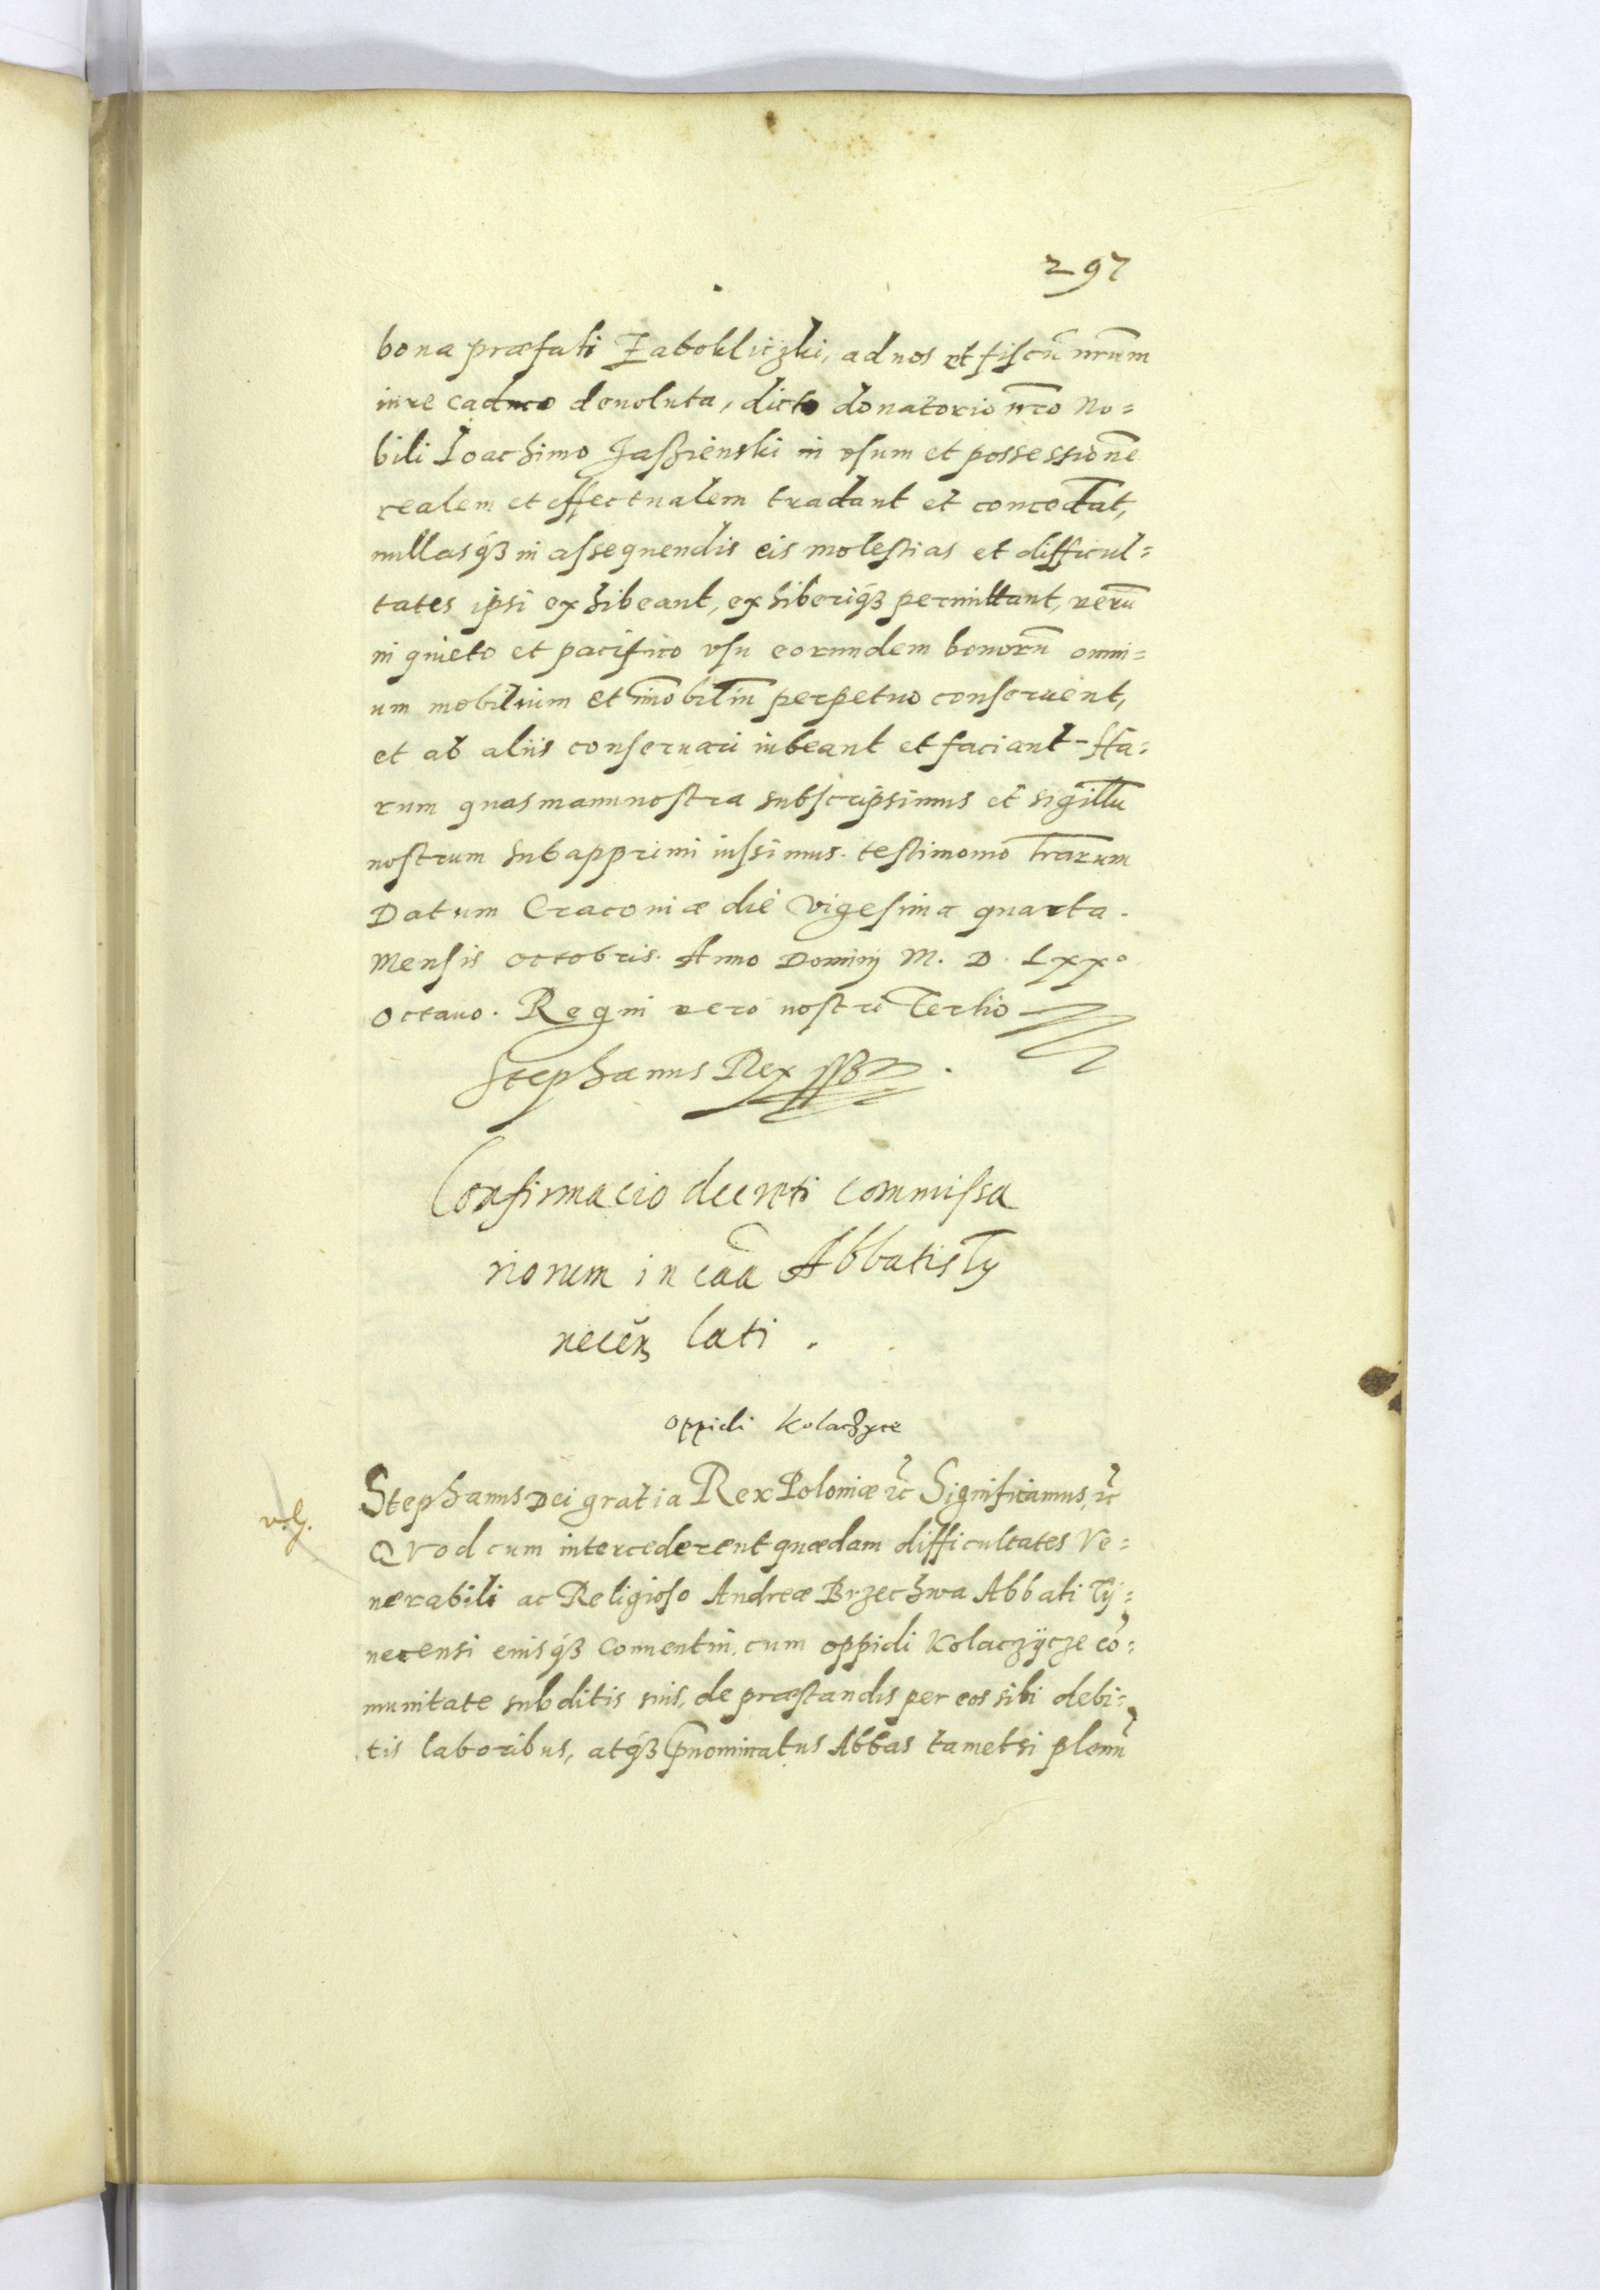 297
bona præfati Zabokliczki, ad nos et fiscū nr̄um
iure caduco deuoluta, dicto donatorio nr̄o No=
bili Ioachimo Jaszienski in vsum et possessionē
realem et effectualem tradant et concedāt,
nullasq́ꝫ in assequendis eis molestias et difficul=
tates ipsi exhibeant, exhiberiq́ꝫ permittant, verū
in quieto et pacifico vsu eorundem bonorū omni=
um mobilium et im̄obiliū perpetuo conseruent,
et ab aliis conseruari iubeant et faciant Ha=
rum quas manu nostra subscripsimus et sigillū
nostrum subapprimi iussimus. testimonio lr̄arum
Datum Craconiæ die vigesima quarta.
Mensis Octobris. Anno Dominij M. D. Lxxº
Octauo. Regni vero nostri Tertio
Stephanus Rex sst
Confirmacio decreti Commissa
riorum in caā Abbatis Ty
neceñ lati.
oppidi Kolaczyce
v.g.
Stephanus Dei gratia Rex Poloniæ ꝛc̄ Significamus, ꝛc̄
Qvod cum intercederent quædam difficultates Ve=
nerabili ac Religioso Andreæ Brzechwa Abbati Ty=
necensi eiusq́ꝫ Conuentui, cum oppidi Kolaczÿcze cō=
munitate subditis suis, de præstandis per eos sibi debi=
tis laboribus, atq́ꝫ p̄nominatus Abbas tametsi plenū